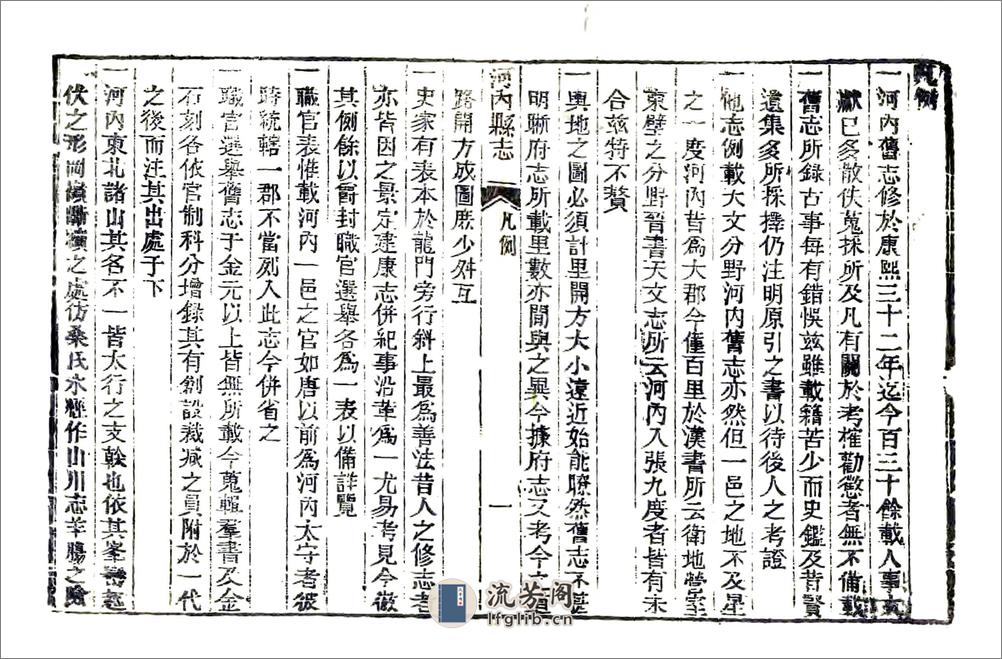 凡例
一河內舊志修於康熙三十二年迄今百三十餘載人事文
獻已多散佚蒐採所及凡有關於考榷勸懲者無不備載
一舊志所錄古事每有錯悞茲雖載籍苦少而史鑑及昔賢
遺集多所採擇仍注明原引之書以待後人之考證
一他志例載天文分野河內舊志亦然但一邑之地不及星
之一度河內昔為大郡今僅百里於漢書所云衛地營室
東壁之分野晉書天文志所云河內入張九度者皆有未
合茲特不贅
一輿地之圖必須計里開方大小遠近始能瞭然舊志不甚
明晰府志所載里數亦間與之異今據府志又考今之道
路開方成圖庶少舛互
河內縣志
凡例
一
一史家有表本於龍門旁行斜上最為善法昔人之修志者
亦皆因之景定建康志併紀事沿革為一尤易考見今倣
其例餘以爵封職官選舉各為一表以備詳覽
一職官表惟載河內一邑之官如唐以前為河內太守者彼
時統轄一郡不當列入此志今併省之
一職官選舉舊志于金元以上皆無所載今蒐輯羣書及金
石刻各依官制科分增錄其有創設裁減之員附於一代
之後而注其出處于下
一河內東北諸山其名不一皆太行之支榦也依其峯巒起
伏之形岡嶺斷續之處仿桑氏水經作山川志羊腸之險
流芳阁
lfglib.cn